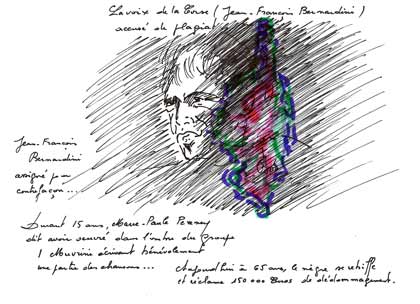 La voix de la Corse (Jean-François Bernardini)
accusé de plagiat
Jean-François
Bernardini
assigné pour
contrefaçon...
Durant 15 ans, Marie-Paule
dit avoir œuvré dans l'ombre du groupe
I Muvrini écrivant bénévolement
une partie des chansons...
Aujourd'hui à 65 ans, le nègre se rebiffe
et réclame 150 000 Euros de dédommagement.